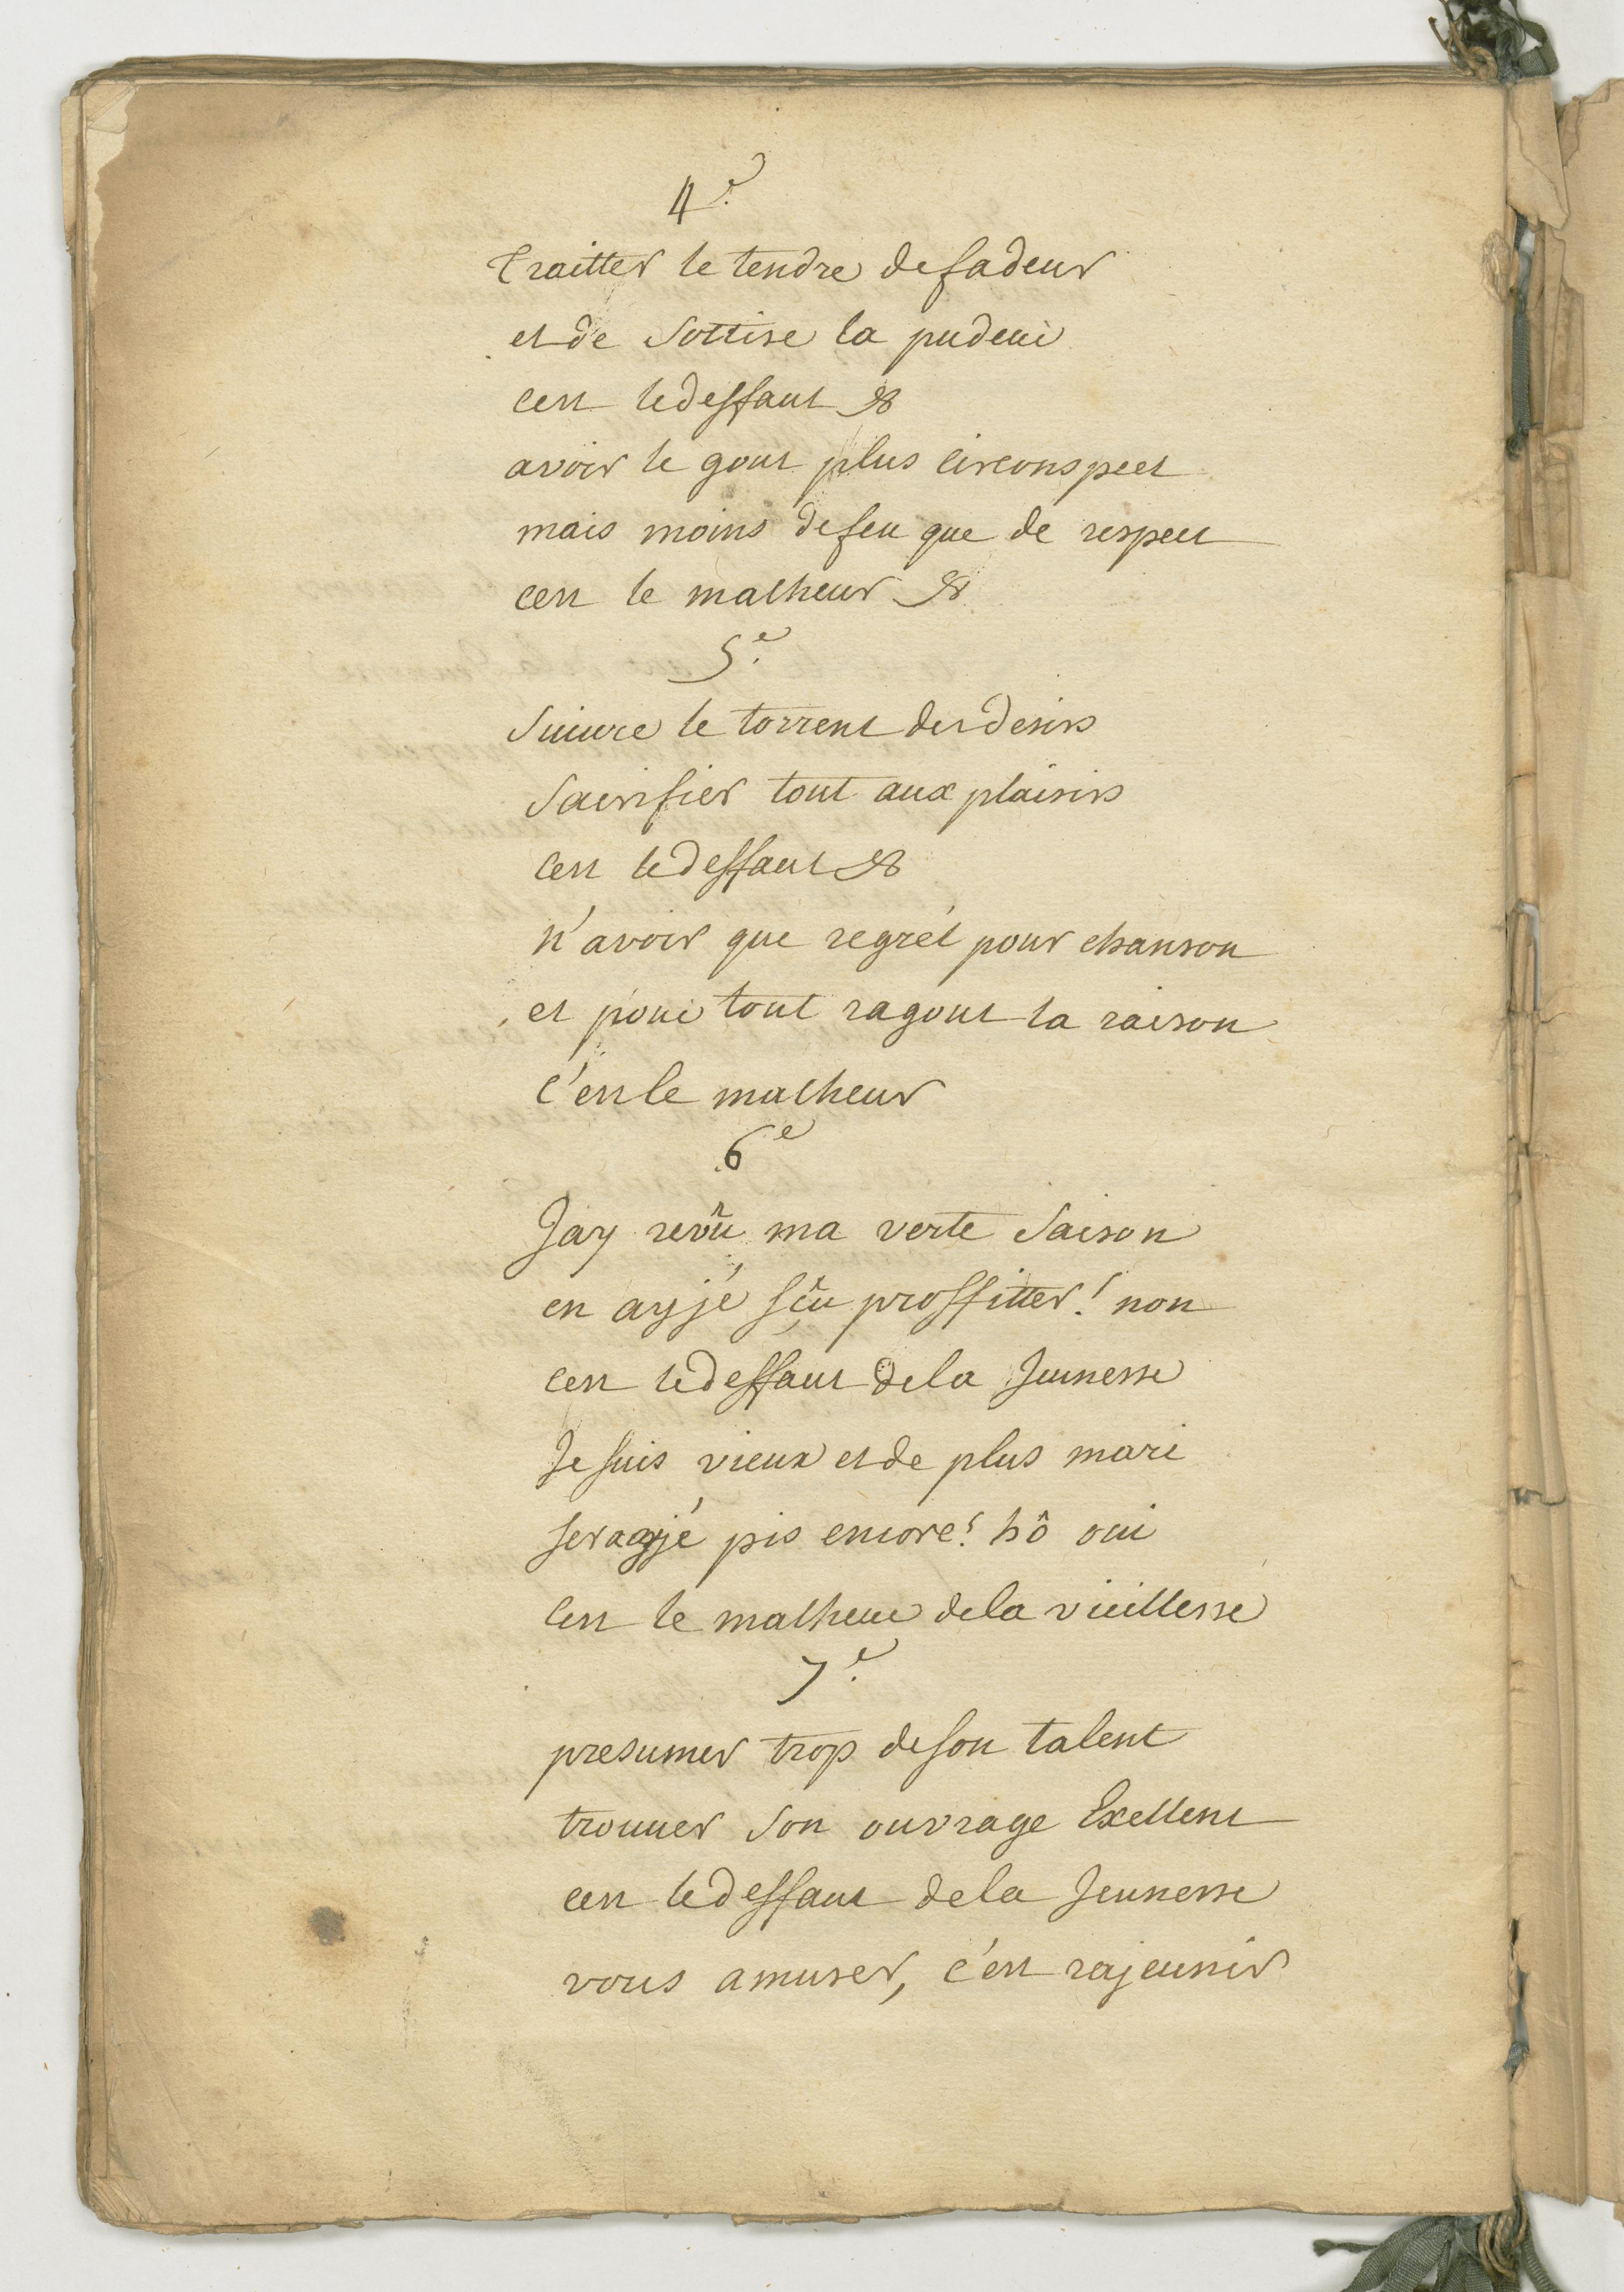 4.e
traitter le tendre de fadeur
et de Sottise la pudeur
cest le deffaut &
avoir le gout plus circonspect
mais moins de feu que de respect
cest le malheur &
5.e
Suivre le torrent des desirs
Sacrifier tout aux plaisirs
cest le deffaut &
n'avoir que regrét pour chanson
et pour tout ragout la raison
c'est le malheur
6e
Jay revû ma verte Saison
en ay jé sçu proffitter! non
cest le deffaut de la Jeunesse
Je suis vieux et de plus mari
seray jé pis encore! hô oui
cest le malheur de la vieillesse
7.e
presumer trop de son talent
trouuer Son ouvrage Exellent
cest le deffaut de la Jeunesse
vous amuser, c'est rajeunir